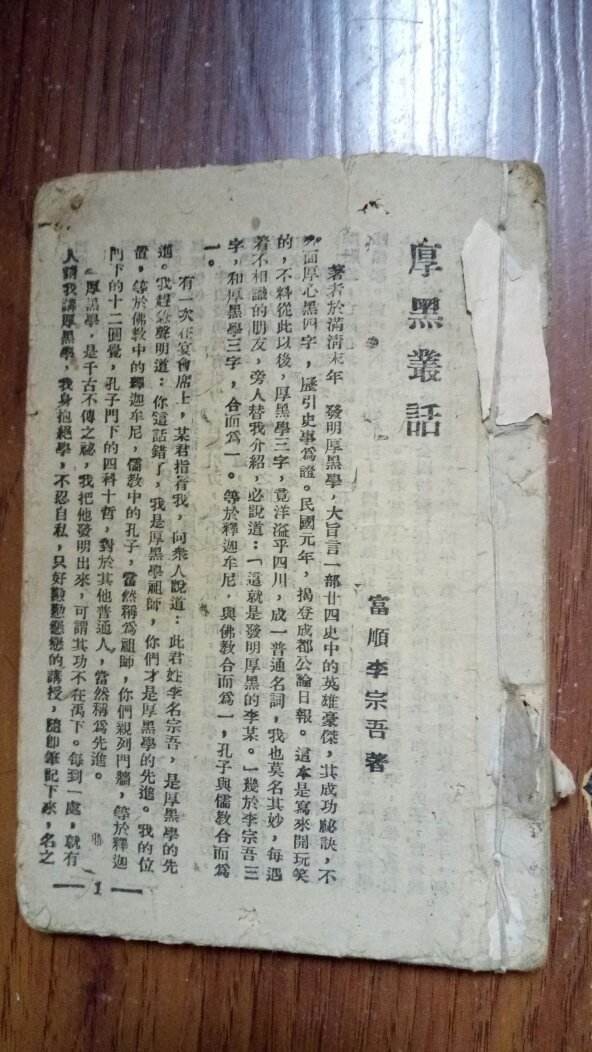 厚黑叢話
富順李宗吾著
著者於滿清末年 發明厚黑學，大旨言一部廿四史中的英雄豪傑，其成功祕訣，不
面厚心黑四字，歷引史事爲證。民國元年，揭登成都公論日報。這本是寫來開玩笑
的，不料從此以後，厚黑學三字，竟洋溢乎四川，成一普通名詞，我也莫名其妙，每遇
着不相識的朋友，旁人替我介紹，必說道：「這就是發明厚黑的李某。」幾於李宗吾三
字，和厚黑學三字，合而爲一。等於釋迦牟尼，與佛教合而爲一，孔子與儒教合而爲
一。
有一次在宴會席上，某君指着我，向衆人說道：此君姓李名宗吾，是厚黑學的先
進。我趕緊聲明道：你這話錯了，我是厚黑學祖師，你們才是厚黑學的先進。我的位
置，等於佛教中的釋迦牟尼，儒教中的孔子，當然稱爲祖師，你們親列門牆，等於釋迦
門下的十二圓覺，孔子門下的四科十哲，對於其他普通人，當然稱爲先進。
厚黑學，是千古不傳之祕，我把他發明出來，可謂其功不在禹下。每到一處，就有
人請我講厚黑學，我身抱絕學，不忍自私，只好勤勤懇懇的講授，隨即筆記下來，名之
1